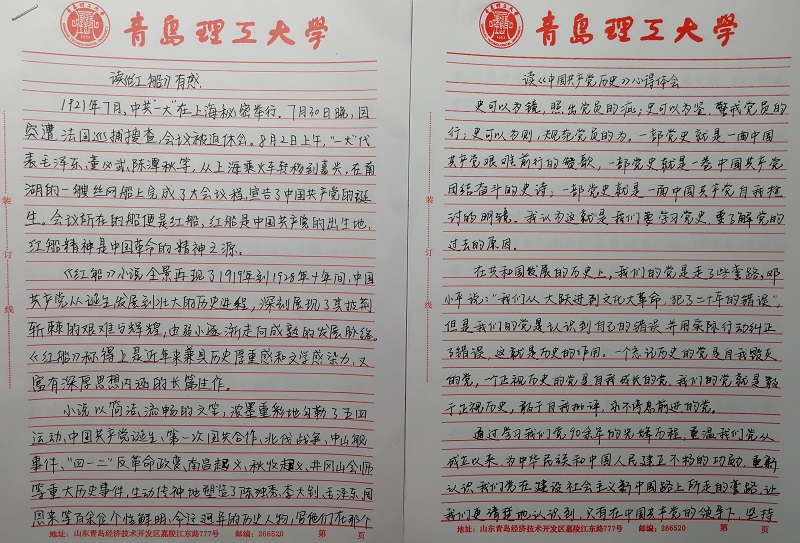 青岛理工大学
读《红船》有感
1921年7月,中共"一大"在上海秘密举行。7月30日晚,因
突遭法国巡捕搜查,会议被迫休会。8月2日上午,"一大"代
表毛泽东、董必武、陈潭秋等,从上海乘火车转移到嘉兴,在南
湖的一艘丝网船上完成了大会议程,宣告了中国共产党的诞
生。会议所在的船便是红船,红船是中国共产党的出生地,
红船精神是中国革命的精神之源。
《红船》小说全景再现了1919年到1928年十年间,中国
共产党从诞生、发展到壮大的历史进程,深刻展现了其披荆
斩棘的艰难与辉煌,由弱小逐渐走向成熟的发展脉络。
《红船》称得上是近年来兼具历史厚重感和文学感染力,又
富有深厚思想内涵的长篇佳作。
小说以简洁、流畅的文笔,浓墨重彩地勾勒了五四
运动、中国共产党诞生、第一次国共合作、北伐战争、中山舰
事件、"四一二"反革命政变、南昌起义、秋收起义、井冈山会师
等重大历史事件,生动传神地塑造了陈独秀、李大钊、毛泽东、周
恩来等百余位个性鲜明、命运迥异的历史人物,写他们在那个
地址:山东青岛经济技术开发区嘉陵江东路777号 邮编:266520 第 页
装
订
线
青岛理工大学
读《中国共产党历史》心得体会
史可以为镜,照出党员的疵;史可以为鉴,警戒党员的
行;史可以为则,规范党员的为。一部党史就是一曲中国
共产党艰难前行的赞歌,一部党史就是一卷中国共产党
团结奋斗的史诗;一部党史就是一面中国共产党自我检
讨的明镜。我认为这就是我们要学习党史,要了解党的
过去的原因。
在共和国发展的历史上,我们的党是走了些弯路,邓
小平说:"我们从大跃进到文化大革命,犯了二十年的错误",
但是我们的党是认识到自己的错误并用实际行动纠正
了错误,这就是历史的作用。一个忘记历史的党是自我毁灭
的党,一个正视历史的党是自我成长的党。我们的党就是敢
于正视历史,敢于自我批评,永不停息前进的党。
通过学习我们党90余年的光辉历程,重温我们党从
成立以来,为中华民族和中国人民建立不朽的功勋,重新
认识我们党在建设社会主义新中国路上所走的弯路,让
我们更清楚地认识到,只有在中国共产党的领导下,坚持
地址:山东青岛经济技术开发区嘉陵江东路777号 邮编:266520 第 页
装
订
线